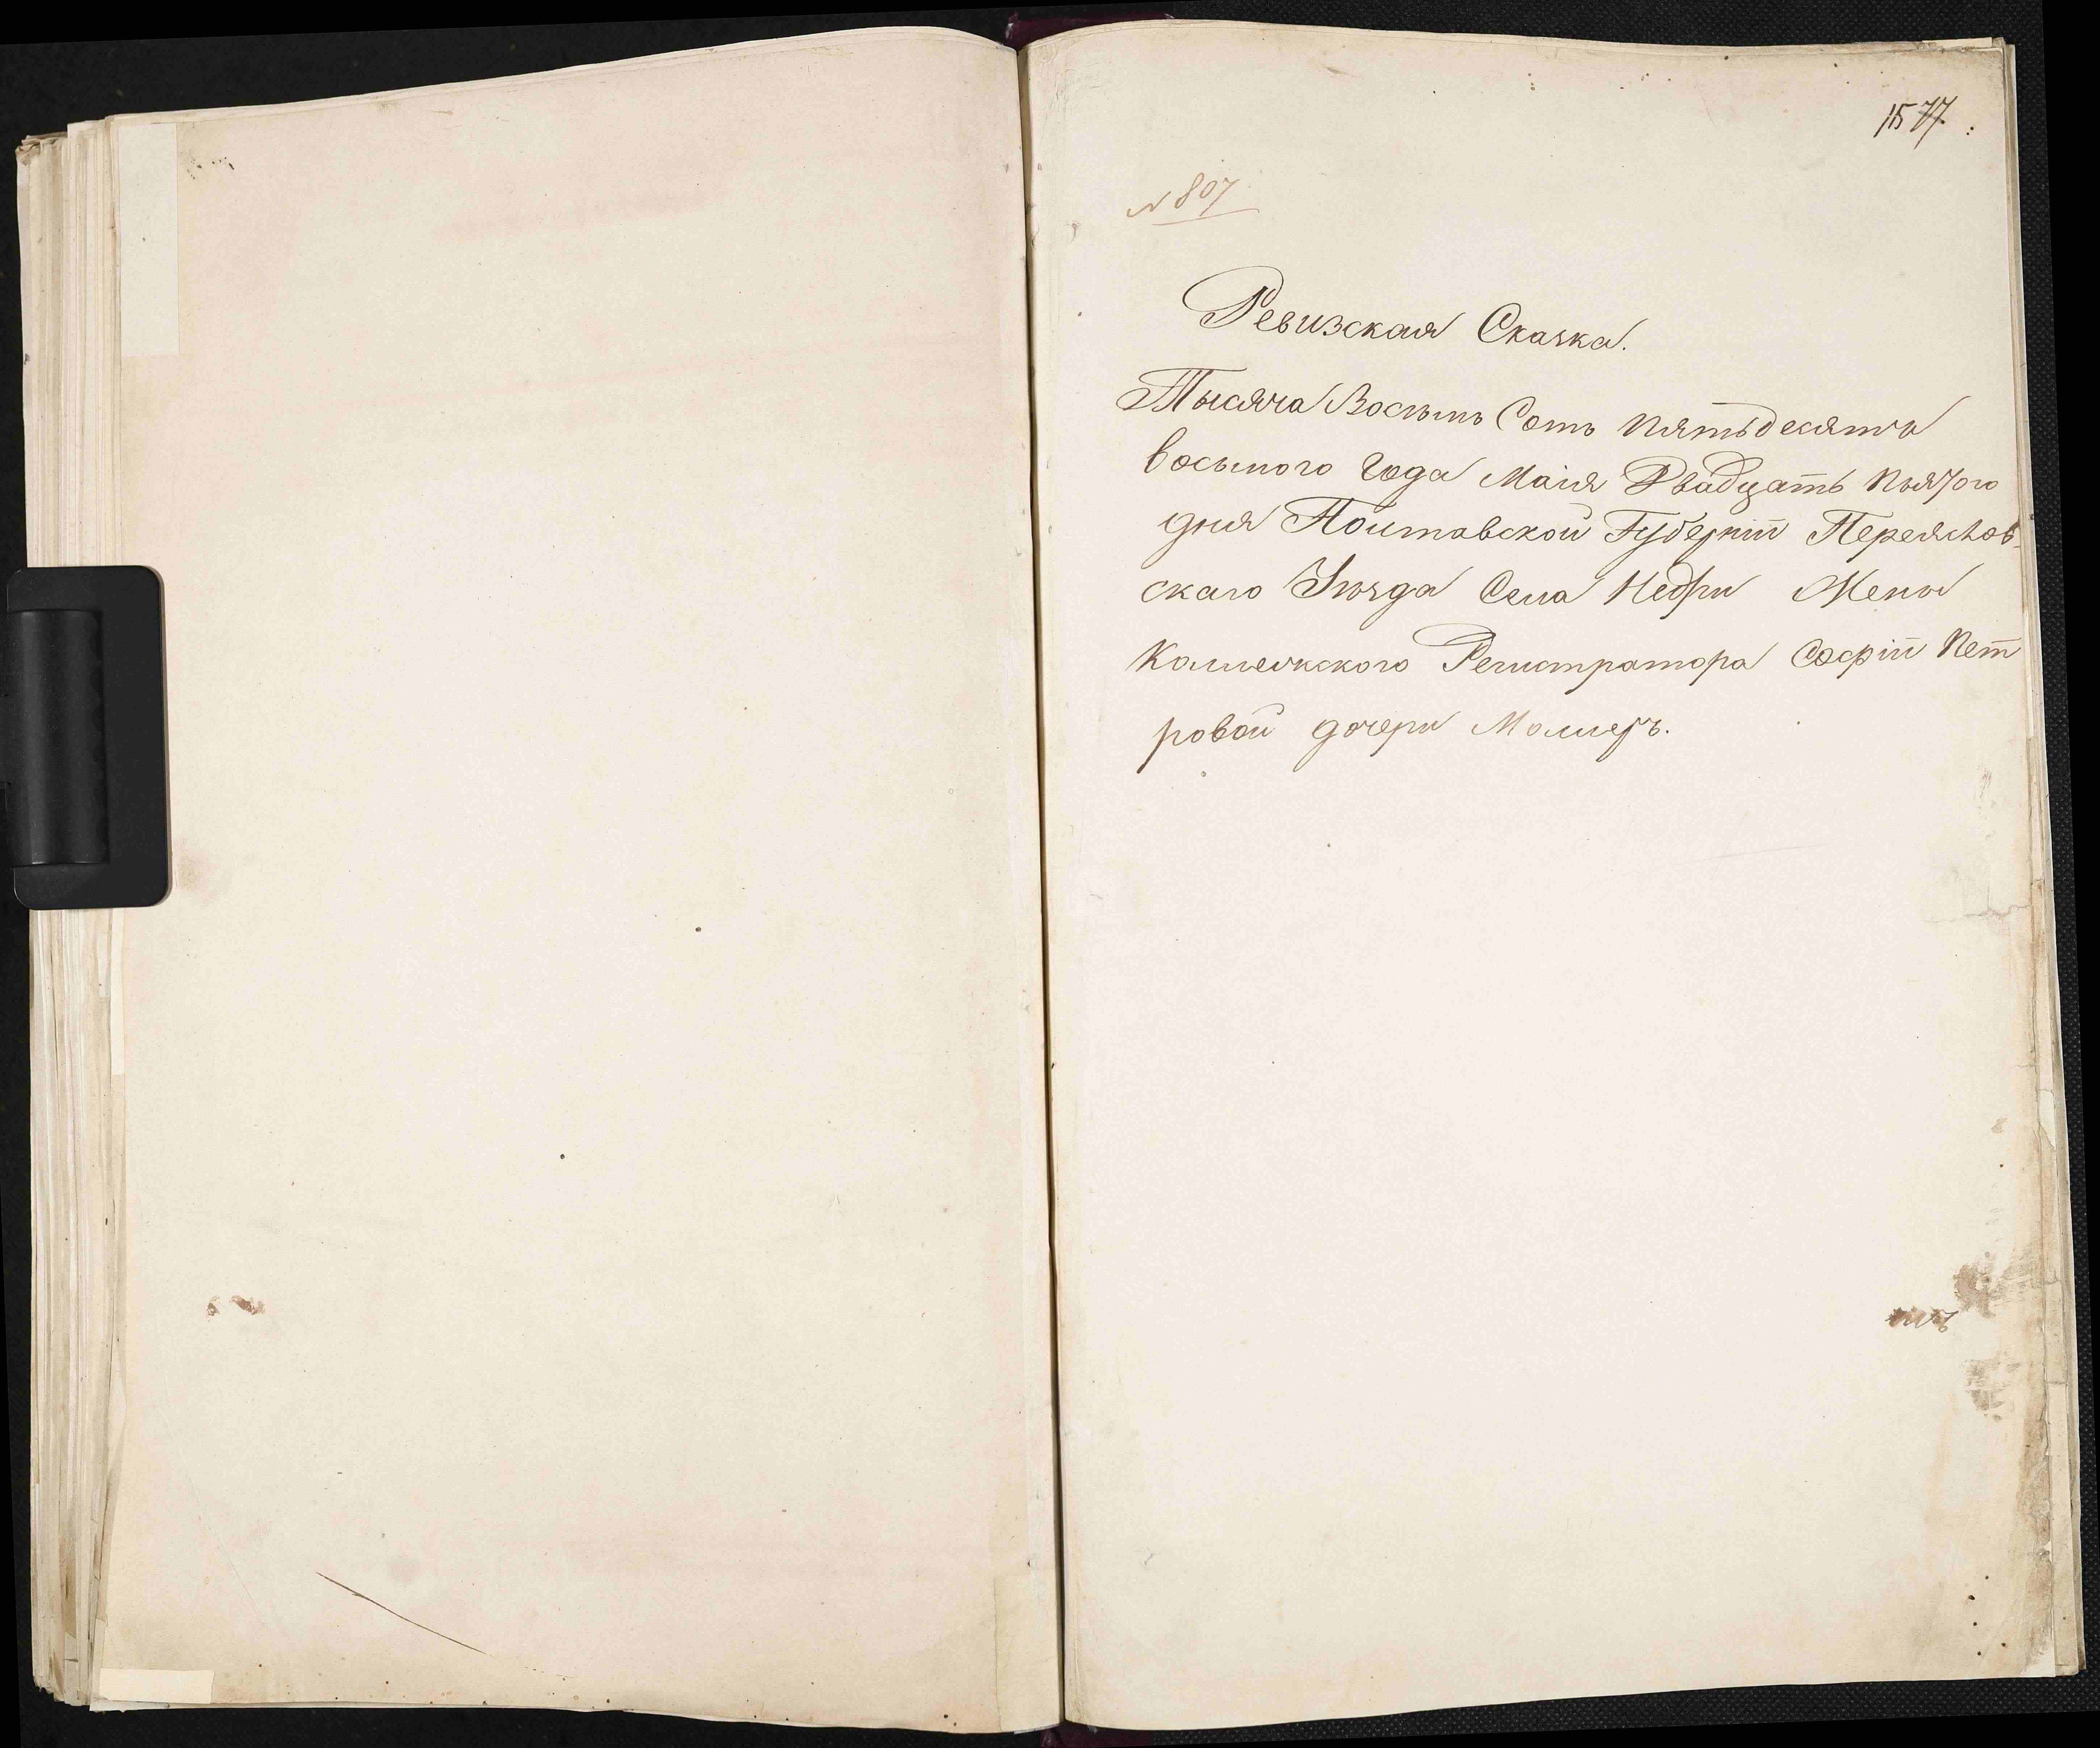 1577.
№ 807
Ревизская Сказка.
Тысяча Восемь Сотъ пятьдесятъ
восьмого года Маія Двадцать пьятого
дня Полтавской Губерніи Переяслов-
скаго Уѣзда Села Недри Жены
Коллежского Регистратора Софіи Пет
ровой дочери Моллеръ.